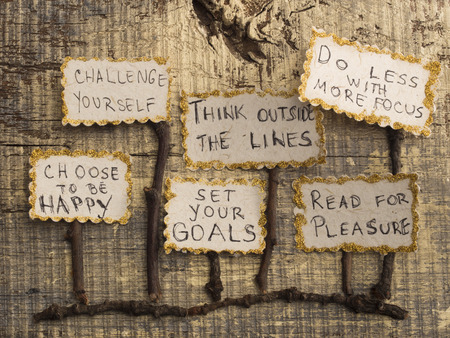 CHALLENGE
YOURSELF
THINK OUTSIDE
THE LINES
DO LESS
WITH
MORE FOCUS
CHOOSE
TO BE
HAPPY
SET
YOUR
GOALS
READ FOR
PLEASURE